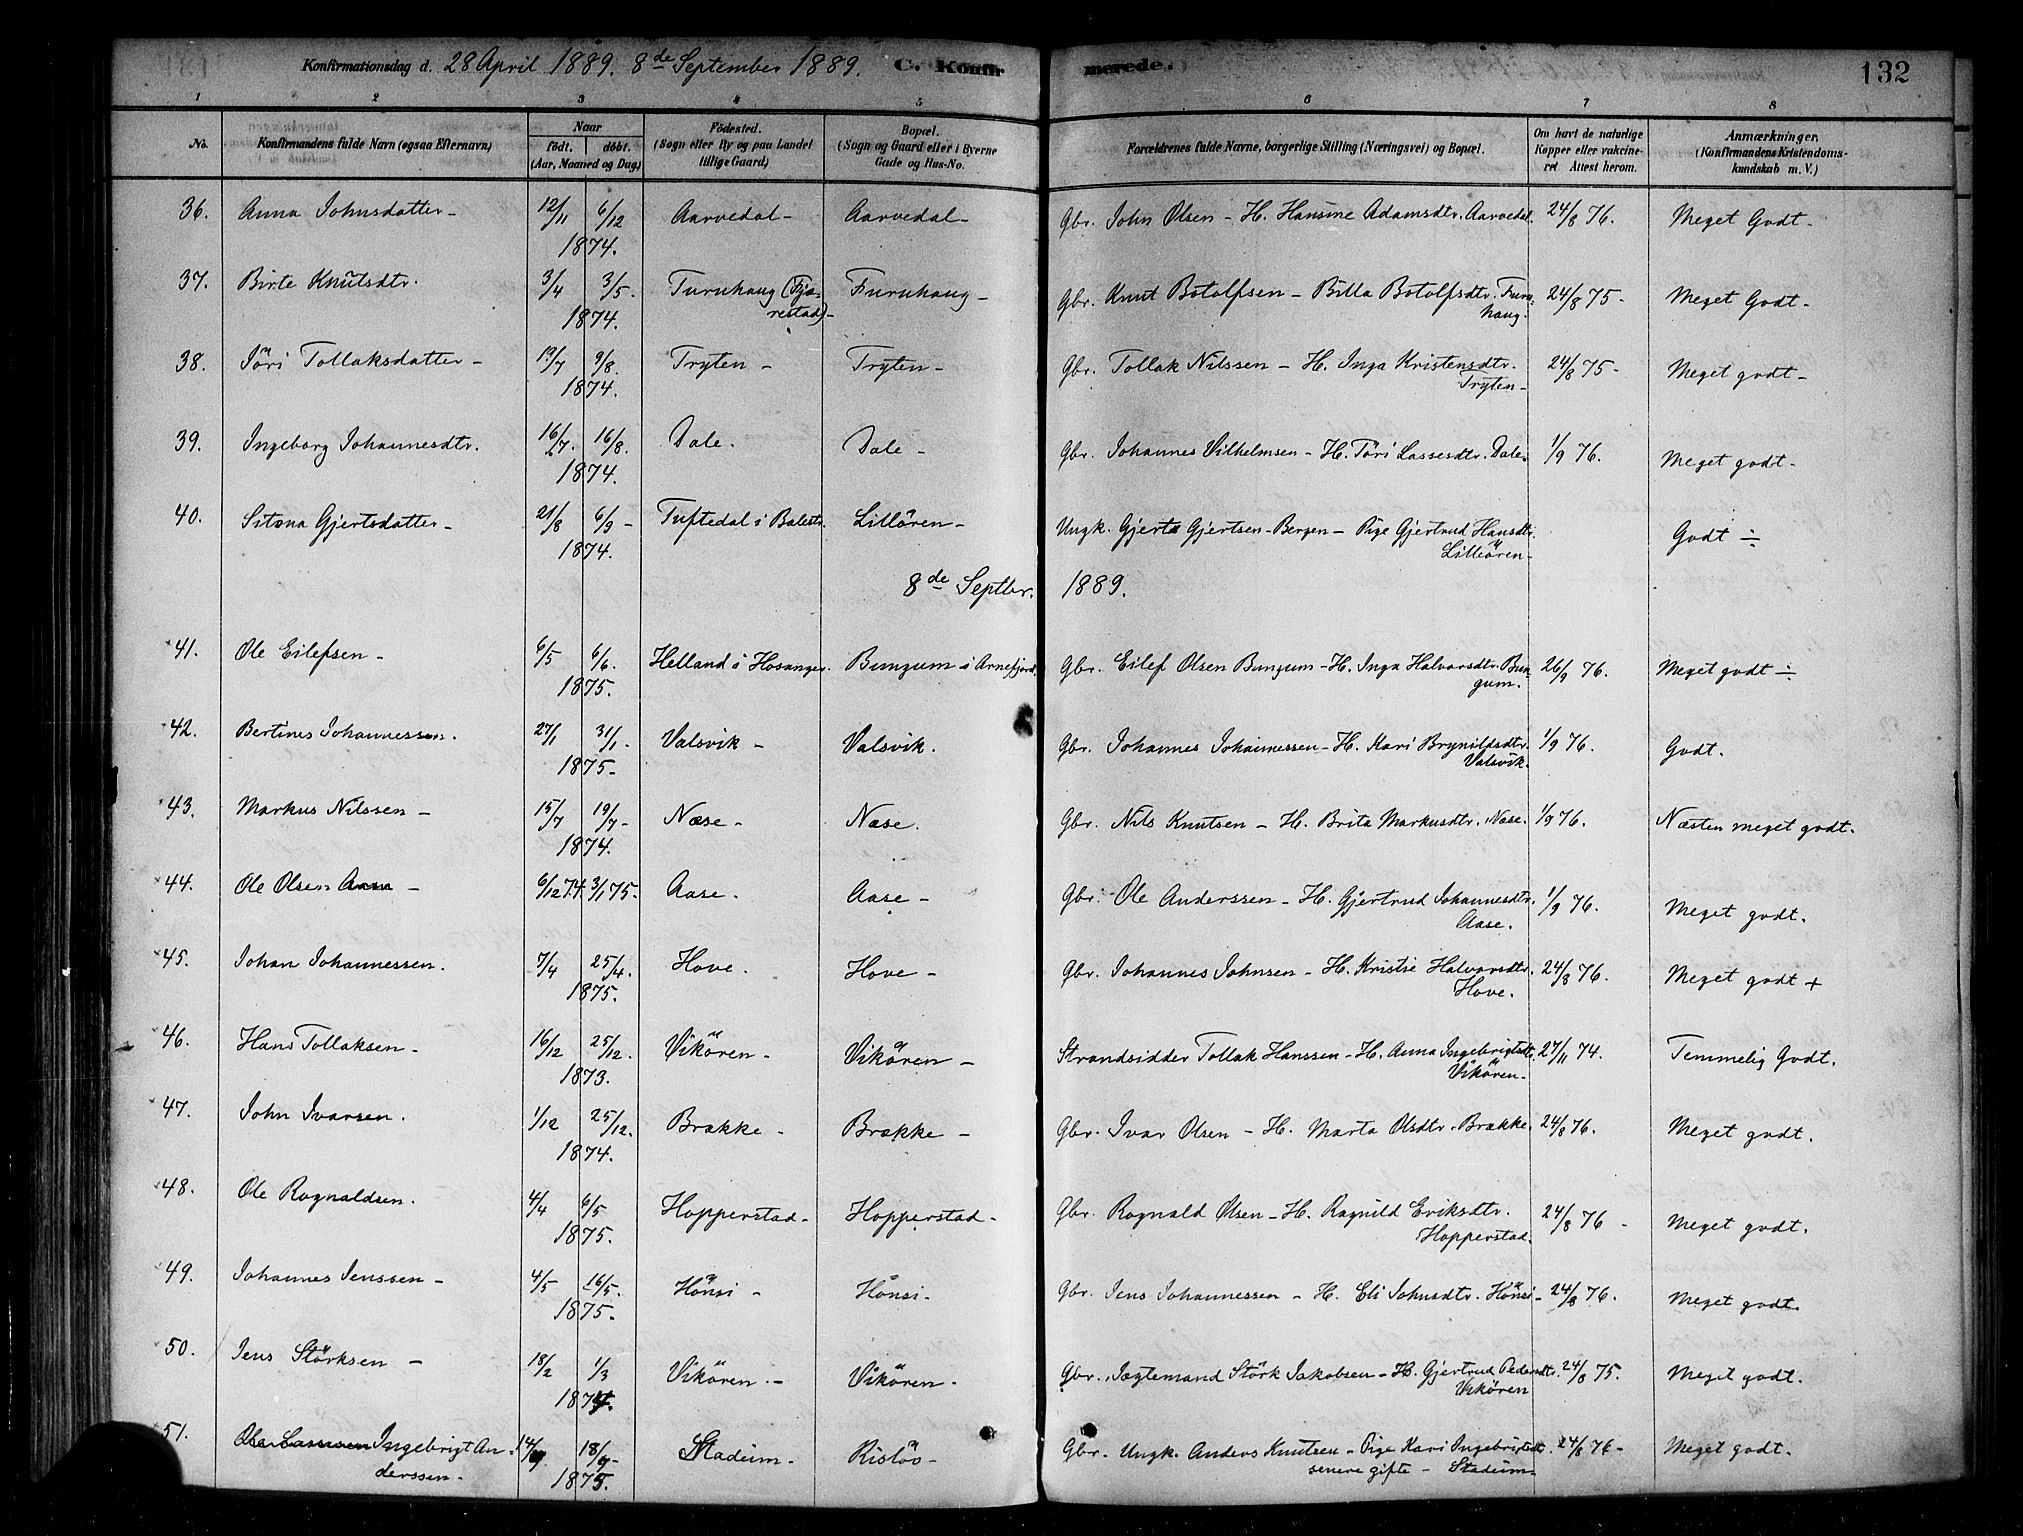 Konfirmationsdag d. 28 April 1889. 8de September 1889. C. Konfirmerede. 132
1 2 3 4 5 6 7 8
No. Konfirmandens fulde Navn (ogsaa Efternavn) Naar født. døbt. (Aar, Maaned og Dag) Fødested. (Sogn eller By og paa Landet tillige Gaard) Bopæl. (Sogn og Gaard eller i Byerne Gade og Hus-No. Forældrenes fulde Navne, borgerlige Stilling (Næringsvei) og Bopæl. Om havt de naturlige Kopper eller vakcineret Attest herom. Anmærkninger. (Konfirmandens Kristendomskundskab m. V.)
36. Anna Johnsdatter - 12/11 6/12 1874. Aarvedal - Aarvedal - Gbr. John Olsen - H. Hansine Adamsdtr. Aarvedal. 24/8 76. Meget Godt -
37. Birte Knutsdtr. 3/4 3/5. 1874. Furuhaug (Fjærestad) - Furuhaug - Gbr. Knut Botolfsen - Bitla Botolfsdtr. Furuhaug. 24/8 75 - Meget Godt -
38. Jöri Tollaksdatter - 19/7 9/8. 1874. Tryten - Tryten - Gbr. Tollak Nilssen - H. Inga Kristensdtr. Tryten - 24/8 75 - Meget godt -
39. Ingeborg Johannesdtr. 16/7. 16/8. 1874. Dale. Dale - Gbr. Johannes Vilhelmsen - H. Töri Lassesdtr. Dale. 1/9 76. Meget godt -
40. Sitsna Gjertsdatter - 21/8 6/9 - 1874. Tuftedal i Balestr. Lillören - Ungk. Gjert Gjertsen - Bergen - Pige Gjertrud Hansdtr. Lilleören - Godt ÷
8de Septbr. 1889.
41. Ole Eilefsen - 6/5 6/6. 1875. Helland i Hosanger. Bungum i Arnefjord. Gbr. Eilef Olsen Bungum - H. Inga Halvorsdtr. Bungum. 26/9 76. Meget godt ÷
42. Bertines Johannessen. 27/1 31/1. 1875 - Valsvik - Valsvik. Gbr. Johannes Johannessen - H. Kari Brynilfsdtr. Valsvik. 1/9 76. Godt.
43. Markus Nilssen - 15/7 19/7 - 1874. Næse - Næse. Gbr. Nils Knutsen - H. Brita Markusdtr. Næse. 1/9 76. Næsten meget godt.
44. Ole Olsen Aase - 6/12 74. 3/1 75. Aase. Aase - Gbr. Ole Anderssen - H. Gjertrud Johannesdtr. Aase. 1/9 76. Meget godt.
45. Johan Johannessen. 7/4 25/4. 1875. Hove. Hove - Gbr. Johannes Johnsen - H. Kristie Halvorsdtr. Hove. 24/8 76. Meget godt +
46. Hans Tollaksen - 16/12 25/12. 1873. Vikören - Vikören - Strandsidder Tollak Hanssen - H. Anna Ingebrigtsdtr. Vikören - 27/11 74. Temmelig Godt.
47. John Ivarsen. 1/12 25/12. 1874. Brække - Brække - Gbr. Ivar Olsen - H. Marta Olsdtr. Brække. 24/8 76. Meget godt.
48. Ole Rognaldsen. 4/4 6/5 1875. Hopperstad - Hopperstad - Gbr. Rognald Olsen - H. Ragnild Eriksdtr. Hopperstad. 24/8 76 - Meget godt.
49. Johannes Jenssen - 4/5 16/5. 1875. Hönsi - Hönsi - Gbr. Jens Johannessen - H. Eli Johnsdtr. Hönsi - 24/8 76. Meget godt.
50. Jens Störksen - 18/2 1/3 1874. Vikören - Vikören - Gbr. Jægtemand Störk Jakobsen - H. Gjertrud Pedersdtr. Vikören 24/8 75. Meget godt.
51. Ole Lassesen Ingebrigt Anderssen - 14/9 18/9 - 1875. Stadeim - Rislöv - Gbr. Ungk. Anders Knutsen - Pige Kari Ingebrigtsdtr. senere gifte - Stadeim - 24/8 76 - Meget godt.